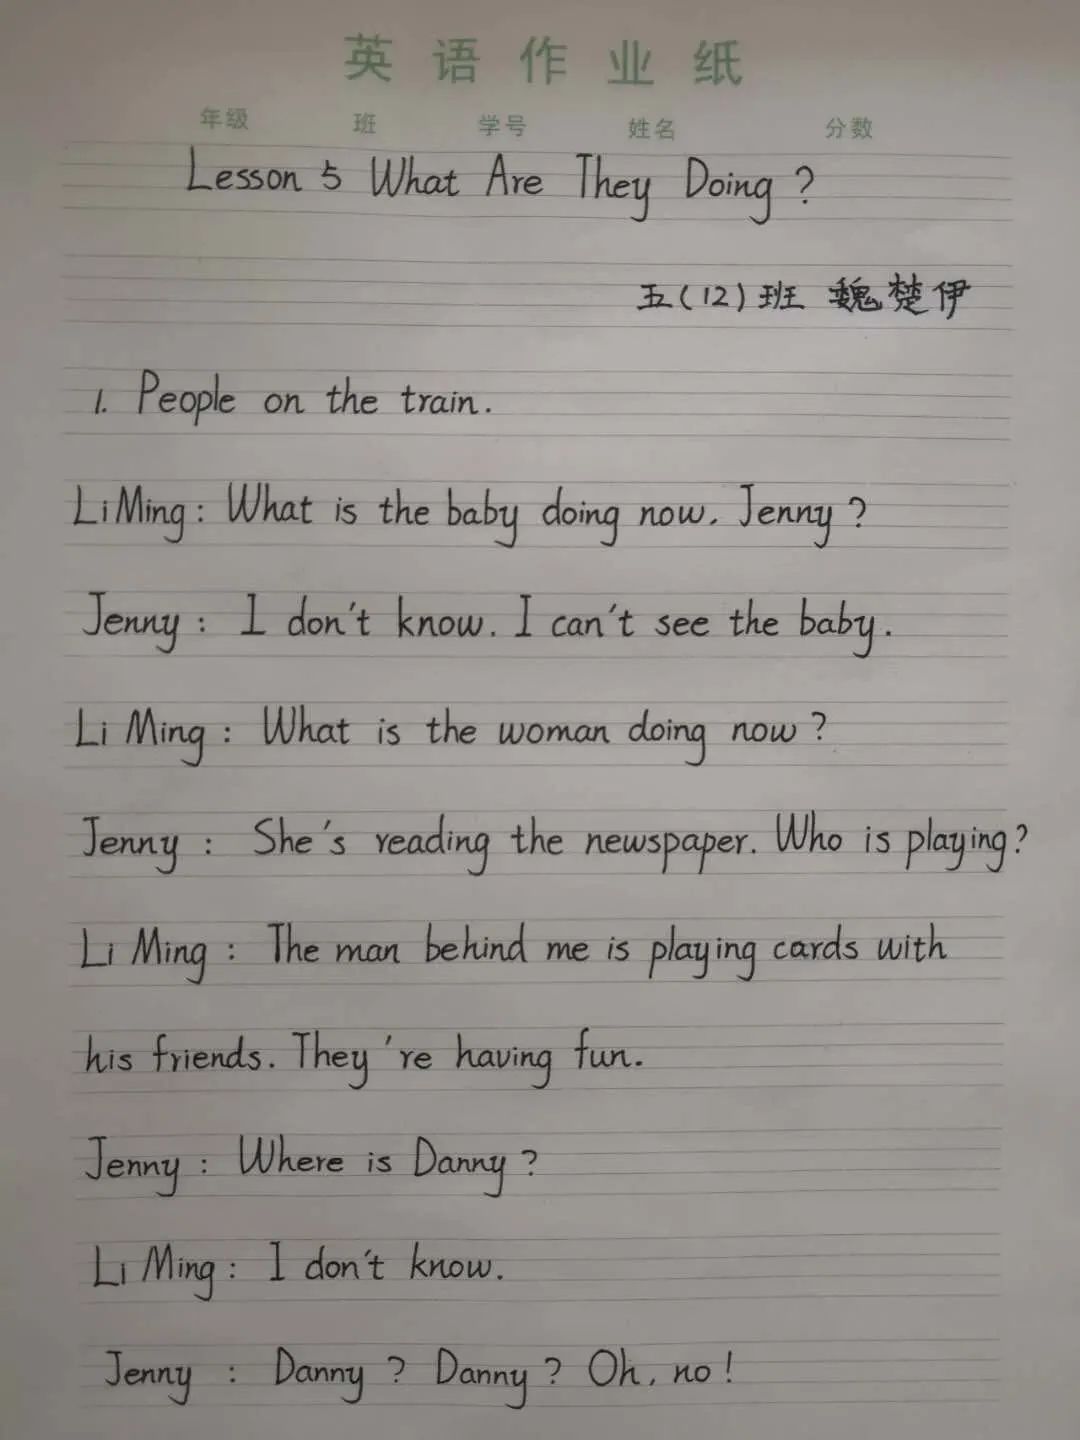 英语作业纸
年级 班 学号 姓名 分数
Lesson 5 What Are They Doing?
五(12)班 魏楚伊
1. People on the train.
Li Ming: What is the baby doing now, Jenny?
Jenny: I don't know. I can't see the baby.
Li Ming: What is the woman doing now?
Jenny: She's reading the newspaper. Who is playing?
Li Ming: The man behind me is playing cards with
his friends. They're having fun.
Jenny: Where is Danny?
Li Ming: I don't know.
Jenny: Danny? Danny? Oh, no!